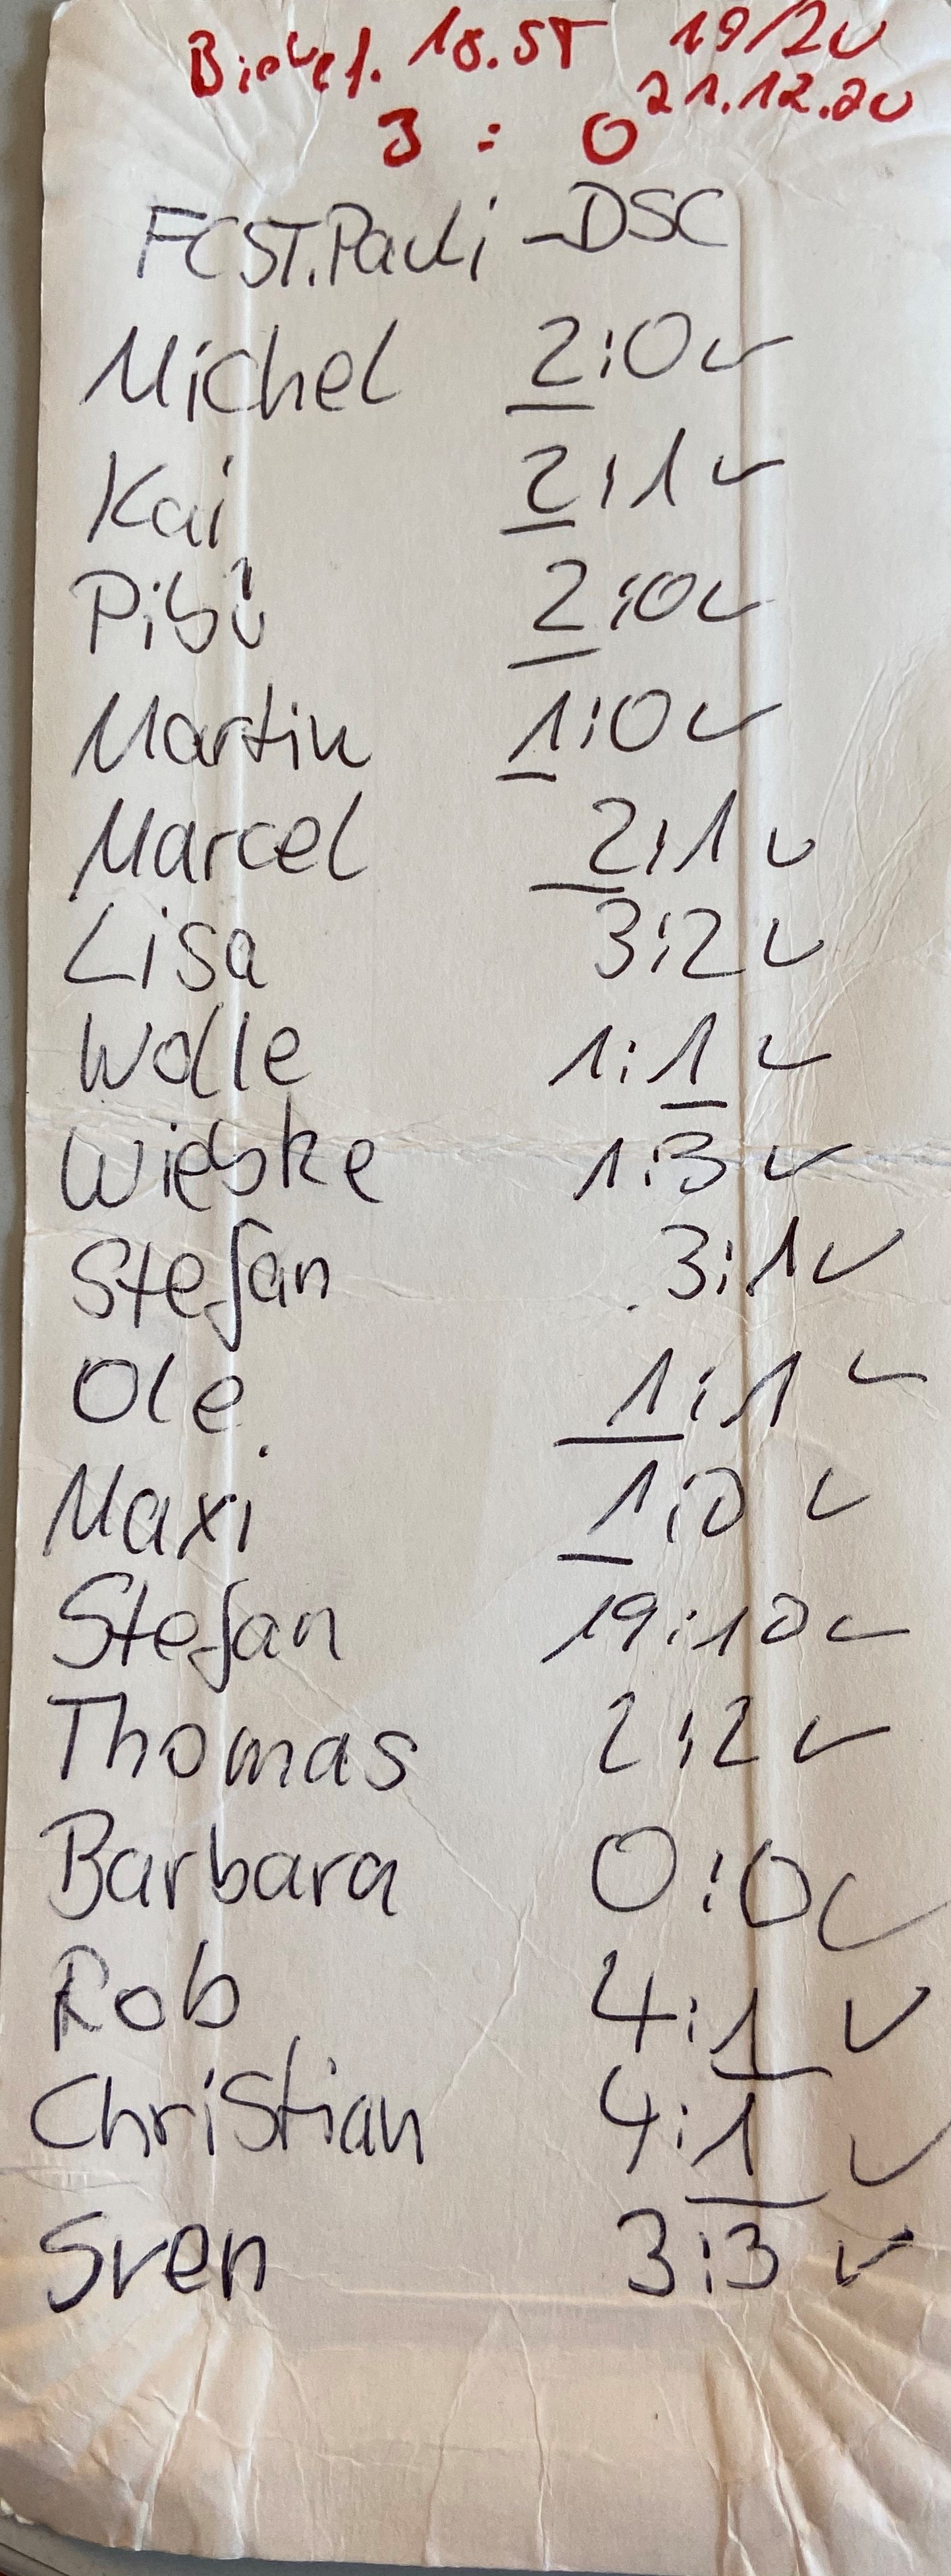 Bielef. 18. ST 19/20
21.12.20
3 : 0
FC ST. Pauli - DSC
Michel 2:0 ✓
Kai 2:1 ✓
Pibü 2:0 ✓
Martin 1:0 ✓
Marcel 2:1 ✓
Lisa 3:2 ✓
Wolle 1:1 ✓
Wiebke 1:3 ✓
Stefan 3:1 ✓
Ole 1:1 ✓
Maxi 1:0 ✓
Stefan 19:10 ✓
Thomas 2:2 ✓
Barbara 0:0 ✓
Rob 4:1 ✓
Christian 4:1 ✓
Sven 3:3 ✓